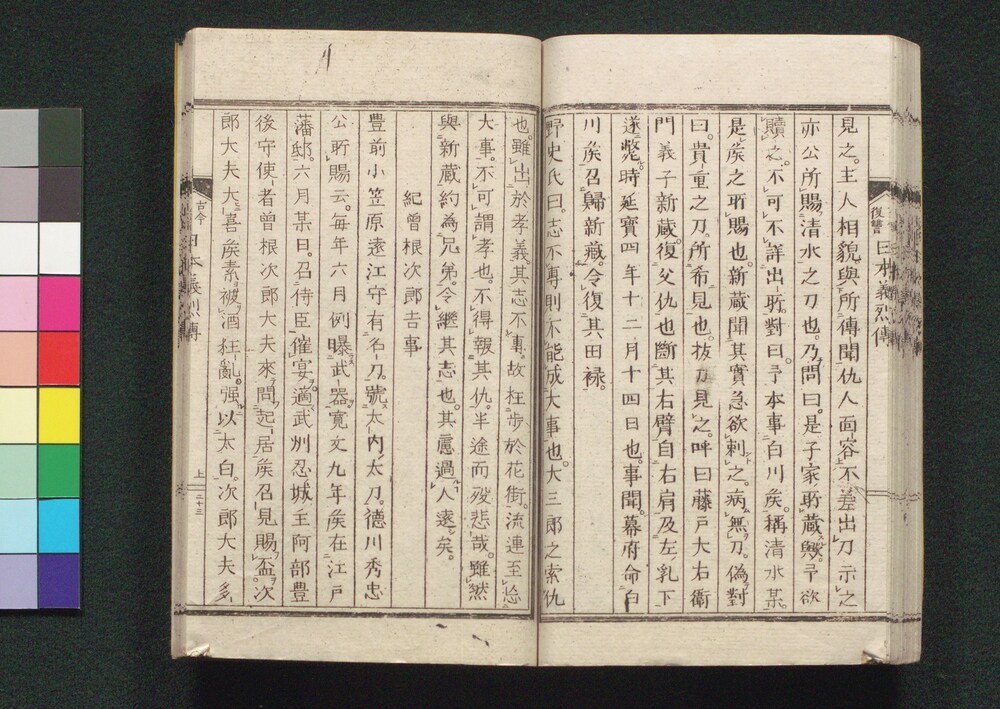 復讐
日本義烈傳
見之。主人相貌與所傳聞仇人面容不差出刀示之
亦公所賜。清水之刀也。乃問曰。是子家所藏歟。予欲
贖之。不可不詳出所。對曰。予本事白川矦。稱清水某。
是矦之所賜也。新蔵聞其實急欲刺之。病無刀。偽對
曰。貴重之刀。所希見也。抜刀見之。呼曰藤戸大右衛
門義子新蔵。復父仇也斷其右臂自右肩及左乳下
遂斃。時延寳四年十二月十四日也。事聞。幕府命白
川矦召歸新蔵。令復其田禄。
野史氏曰。志不專則不能成大事也。大三郎之索仇
也。雖出於孝義。其志不專。故枉歩於花街。流連至忘
大事。不可謂孝也。不得報其仇。半途而歿悲哉。雖然
與新蔵約為兄弟。令繼其志也。其慮過人遠矣。
紀曾根次郎吉事
豊前小笠原遠江守有名刀。號太内太刀。德川秀忠
公所賜云。毎年六月例曝武器寛文九年矦在江戸
藩邸。六月某日。召侍臣催宴。適武州忍城主阿部豊
後守使者曾根次郎大夫來問起居矦召見賜盃。次
郎大夫大喜矦素被酒狂亂。强以太白。次郎大夫多
古今
日本義烈傳
上
二十三